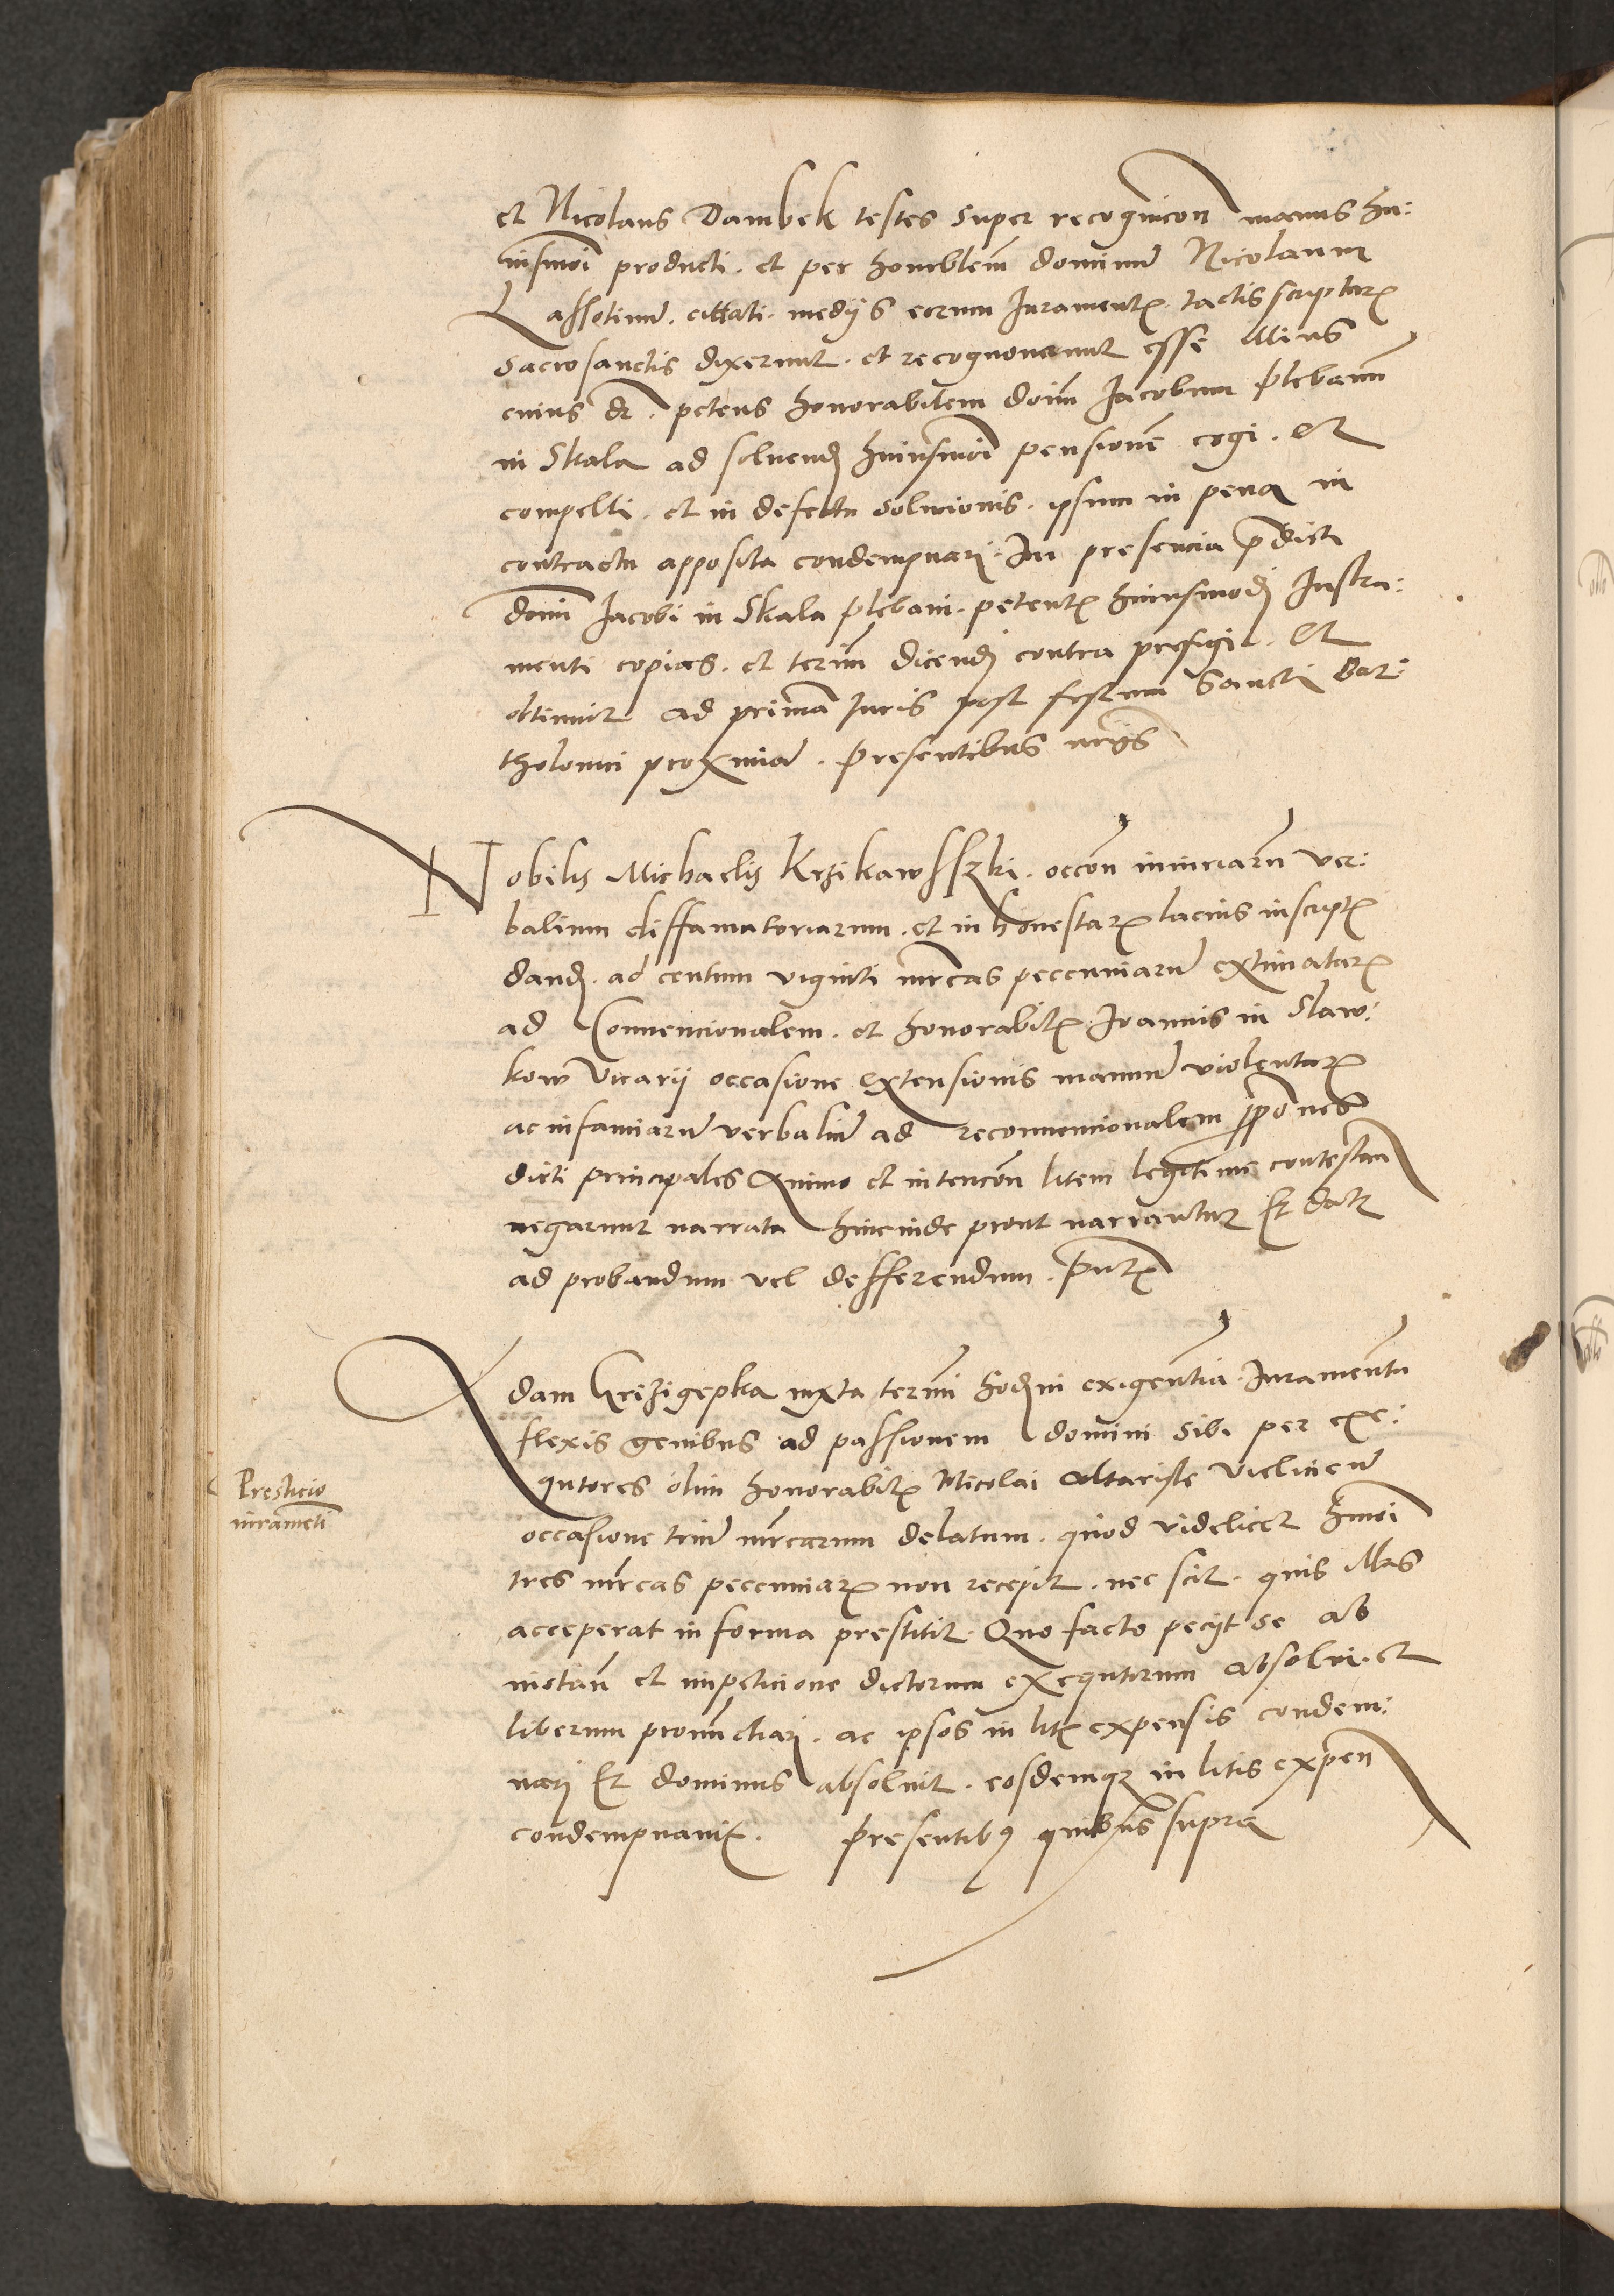 et Nicolaus Dambek testes super recognicon manus hu:
iusmoi producti. et per honorablem dominum Nicolaum
Lassotinum. cittati. medys eorum Iurament. tactis scriptur
sacrosanctis dixerunt. et recognoverunt esse illius
cuius est. petens honorabilem doim Iacobum plebanum
in Skala ad solvend huiusmoi pensionem cogi. Et
compelli. et in defectu solucionis. ipsum in pena in
contractu apposita condempnari. In presencia pdicti
domi Iacobi in Skala plebani. petent huiusmodi Instru:
menti copias. et terim dicendi contra prefigi. Et
obtinuit ad primam Iuris post festum Sancti Bar:
tholomei proximam. presentibus
Nobilis Michaelis Krzikawsszki. occon iniuriarum ver:
balium diffamatoriarum. et in honestar lacius inscript
dand. ad centum viginti mrcas peccuniarum extimatar
ad Convencionalem. et honorabil Ioannis in Slaw:
kow Vicarii occasione extensionis manuum violentar
ac infamiarum verbalium ad reconvencionalem ppones
dicti principales Animo et intencon litem legitime contestan
negarunt narrata hincinde prout narrantur Et datr
ad probandum vel defferendum. pntr
Adam Grzizigepka iuxta termi hodini exigentia. Iuramentu
flexis genibus ad passionem domini sibi per exe:
qutores olim honorabil Nicolai altariste Vielicien
occasione trium mrcarum delatum. quod videlicet hmoi
tres mrcas peccuniar non recepit. nec scit. quis illas
acceperat in forma prestitit. Quo facto peciit se ab
instan et impeticione dictorum exequtorum absolvi. et
liberum pronunctiari. ac ipsos in lit expensis condem:
nari Et dominus absolvit. eosdemqz in litis expen
condempnavit. presentib9 quibus supra
Presticio
iurameti